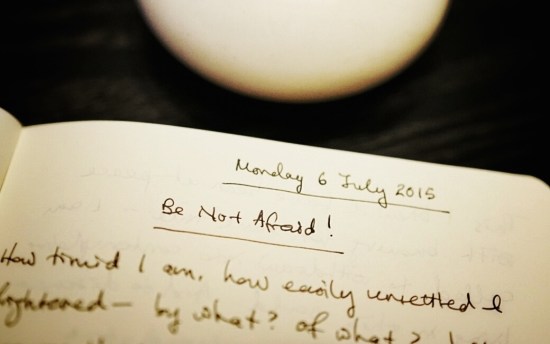 Monday 6 July 2015
Be Not Afraid!
How timid I am, how easily unsettled &
frightened — by what? of what?